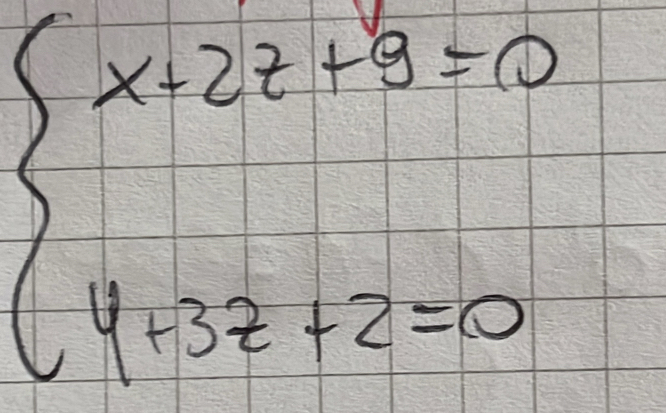 x+2z+9=0
y+3z+2=0